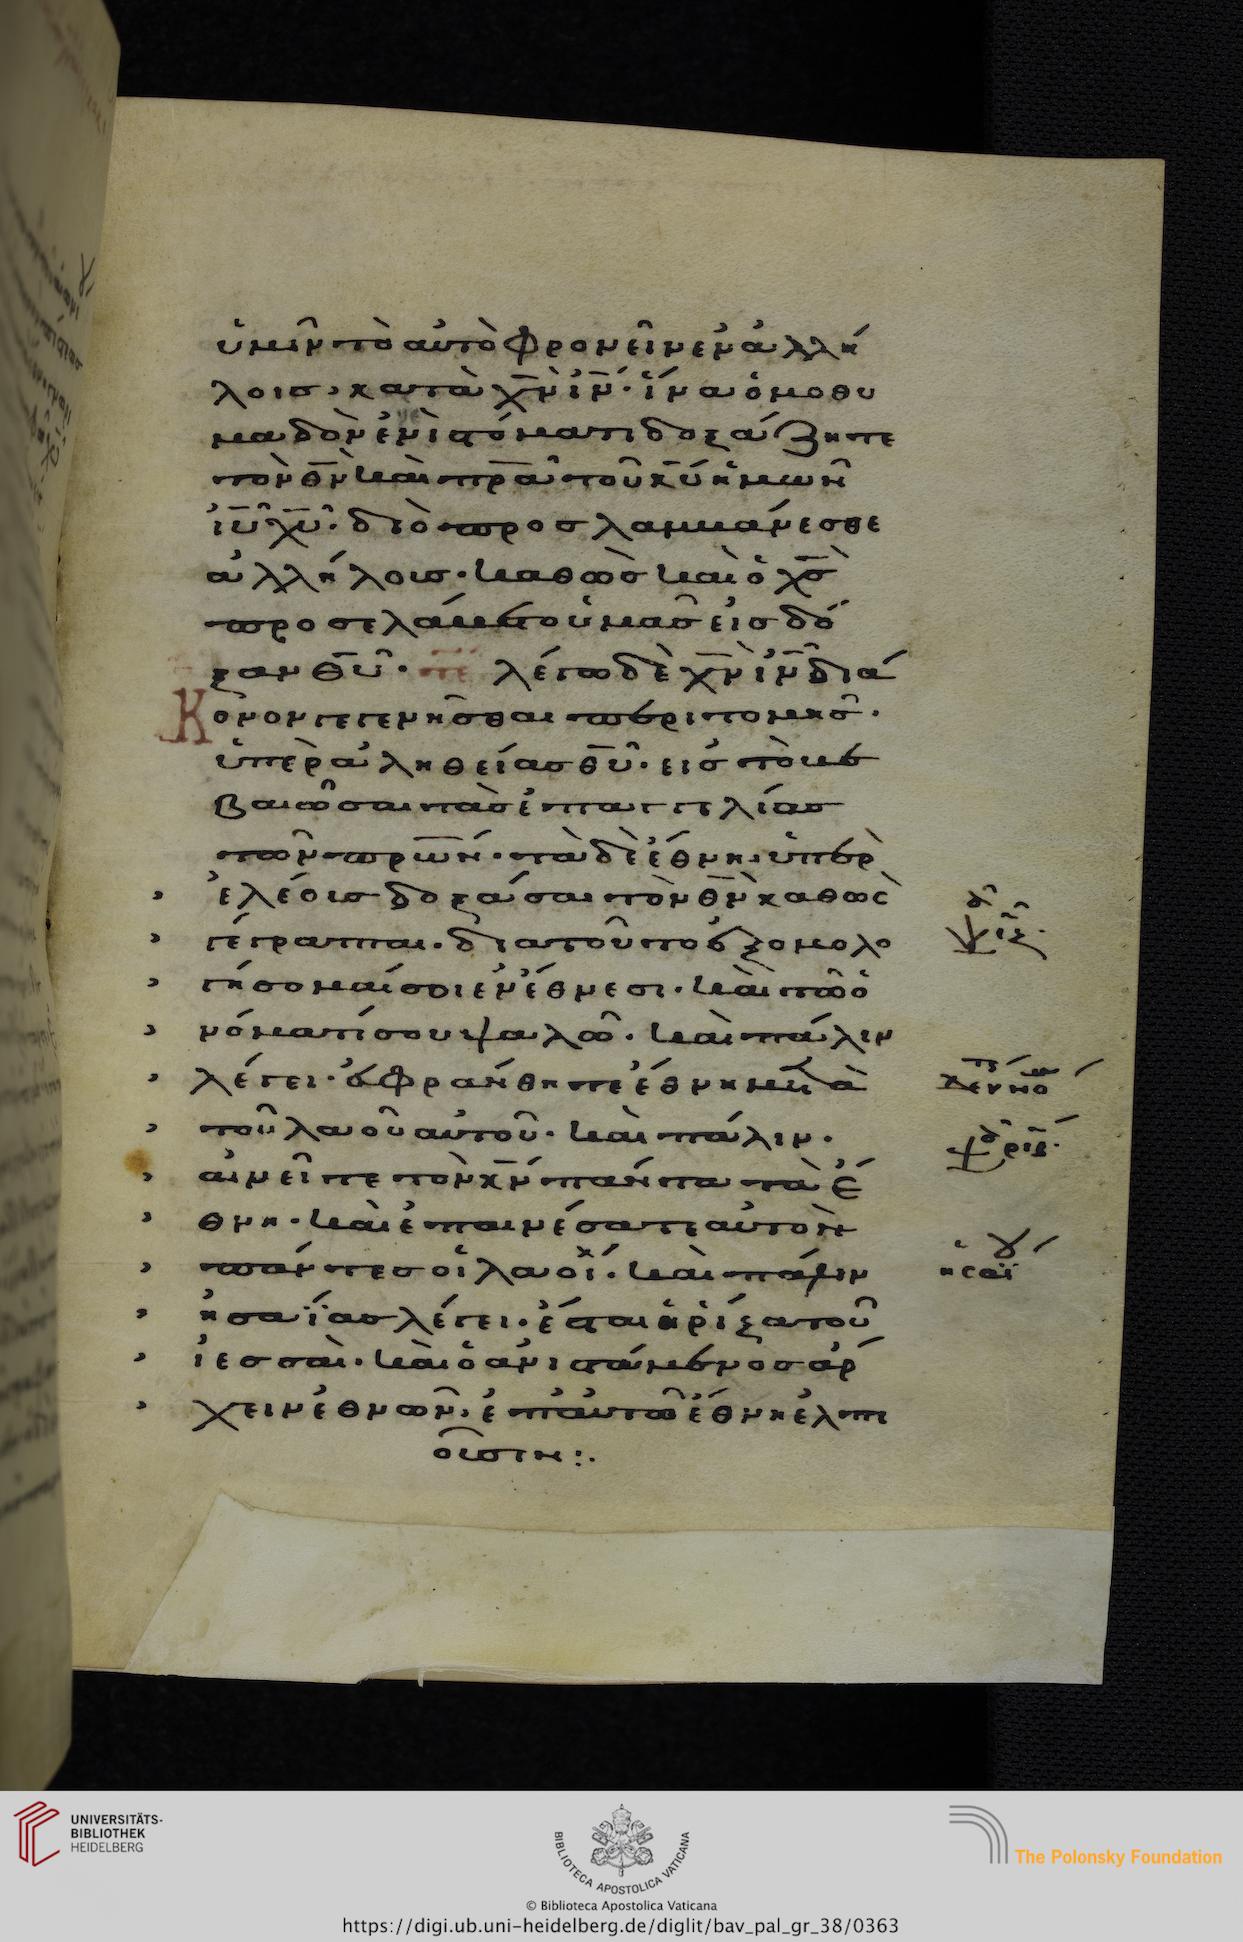 ὑμῖν τὸ αὐτὸ φρονεῖν ἐν ἀλλή
λοις· κατὰ χ̅ν̅ ι̅ν̅· ἵνα ὁμοθυ
μαδὸν ἐν ἑνὶ στόματι δοξάζητε
τὸν θ̅ν̅ καὶ π̅ρ̅α̅ τοῦ κ̅υ̅ ἡμῶν
ι̅υ̅ χ̅υ̅· διὸ προσλαμβάνεσθε
ἀλλήλοις· καθὼς καὶ ὁ χ̅ς̅
προσελάβετο ὑμᾶς εἰς δό
ξαν θ̅υ̅· λέγω δὲ χ̅ν̅ ι̅ν̅ διά
Κονον γεγενῆσθαι περιτομῆς·
ὑπὲρ ἀληθείας θ̅υ̅· εἰς τὸ βε
βαιῶσαι τὰς ἐπαγγελίας
τῶν π̅ρ̅ω̅ν̅· τὰ δὲ ἔθνη· ὑπὲρ
ἐλέοις δοξάσαι τὸν θ̅ν̅ καθὼς
γέγραπται· διατοῦτο ἐξομολο
γήσομαί σοι ἐν ἔθνεσι· καὶ τῶ ὀ
νόματί σου ψαλῶ· καὶ πάλιν
λέγει· εὐφράνθητε ἔθνη μετὰ
τοῦ λαοῦ αὐτοῦ· καὶ πάλιν·
αἰνεῖτε τὸν κ̅ν̅ πάντα τὰ ἔ
θνη· καὶ ἐπαινέσατε αὐτὸν
πάντες οἱ λαοί· καὶ πάλιν
ἠσαΐας λέγει· ἔσται ἡ ῥίζα τοῦ
ἰεσσαὶ· καὶ ὁ ἀνιστάμενος ἄρ
χειν ἐθνῶν· ἐπ' αὐτῶ ἔθνη ἐλπι
οῦσιν:·
UNIVERSITÄTS-
BIBLIOTHEK
HEIDELBERG
BIBLIOTECA APOSTOLICA VATICANA
The Polonsky Foundation
© Biblioteca Apostolica Vaticana
https://digi.ub.uni-heidelberg.de/diglit/bav_pal_gr_38/0363